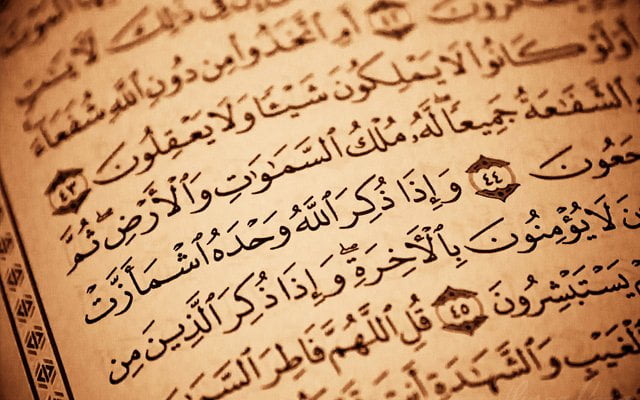 فِى ذَٰلِكَ لَأٓيَٰتٍ
ـفَكَّرُونَ ٤٢ أَمِ ٱتَّخَذُوا۟ مِن دُونِ ٱللَّهِ شُفَعَآءَ
أَوَلَوْ كَانُوا۟ لَا يَمْلِكُونَ شَيْـًٔا وَلَا يَعْقِلُونَ ٤٣
ٱلشَّفَٰعَةُ جَمِيعًا لَّهُۥ مُلْكُ ٱلسَّمَٰوَٰتِ وَٱلْأَرْضِ ثُمَّ
ـجَعُونَ ٤٤ وَإِذَا ذُكِرَ ٱللَّهُ وَحْدَهُ ٱشْمَأَزَّتْ
ـنَ لَا يُؤْمِنُونَ بِٱلْأٓخِرَةِ وَإِذَا ذُكِرَ ٱلَّذِينَ مِن
يَسْتَبْشِرُونَ ٤٥ قُلِ ٱللَّهُمَّ فَاطِرَ ٱلسَّمَٰوَ
ٱلْغَيْبِ وَٱلشَّهَٰدَةِ أَنتَ